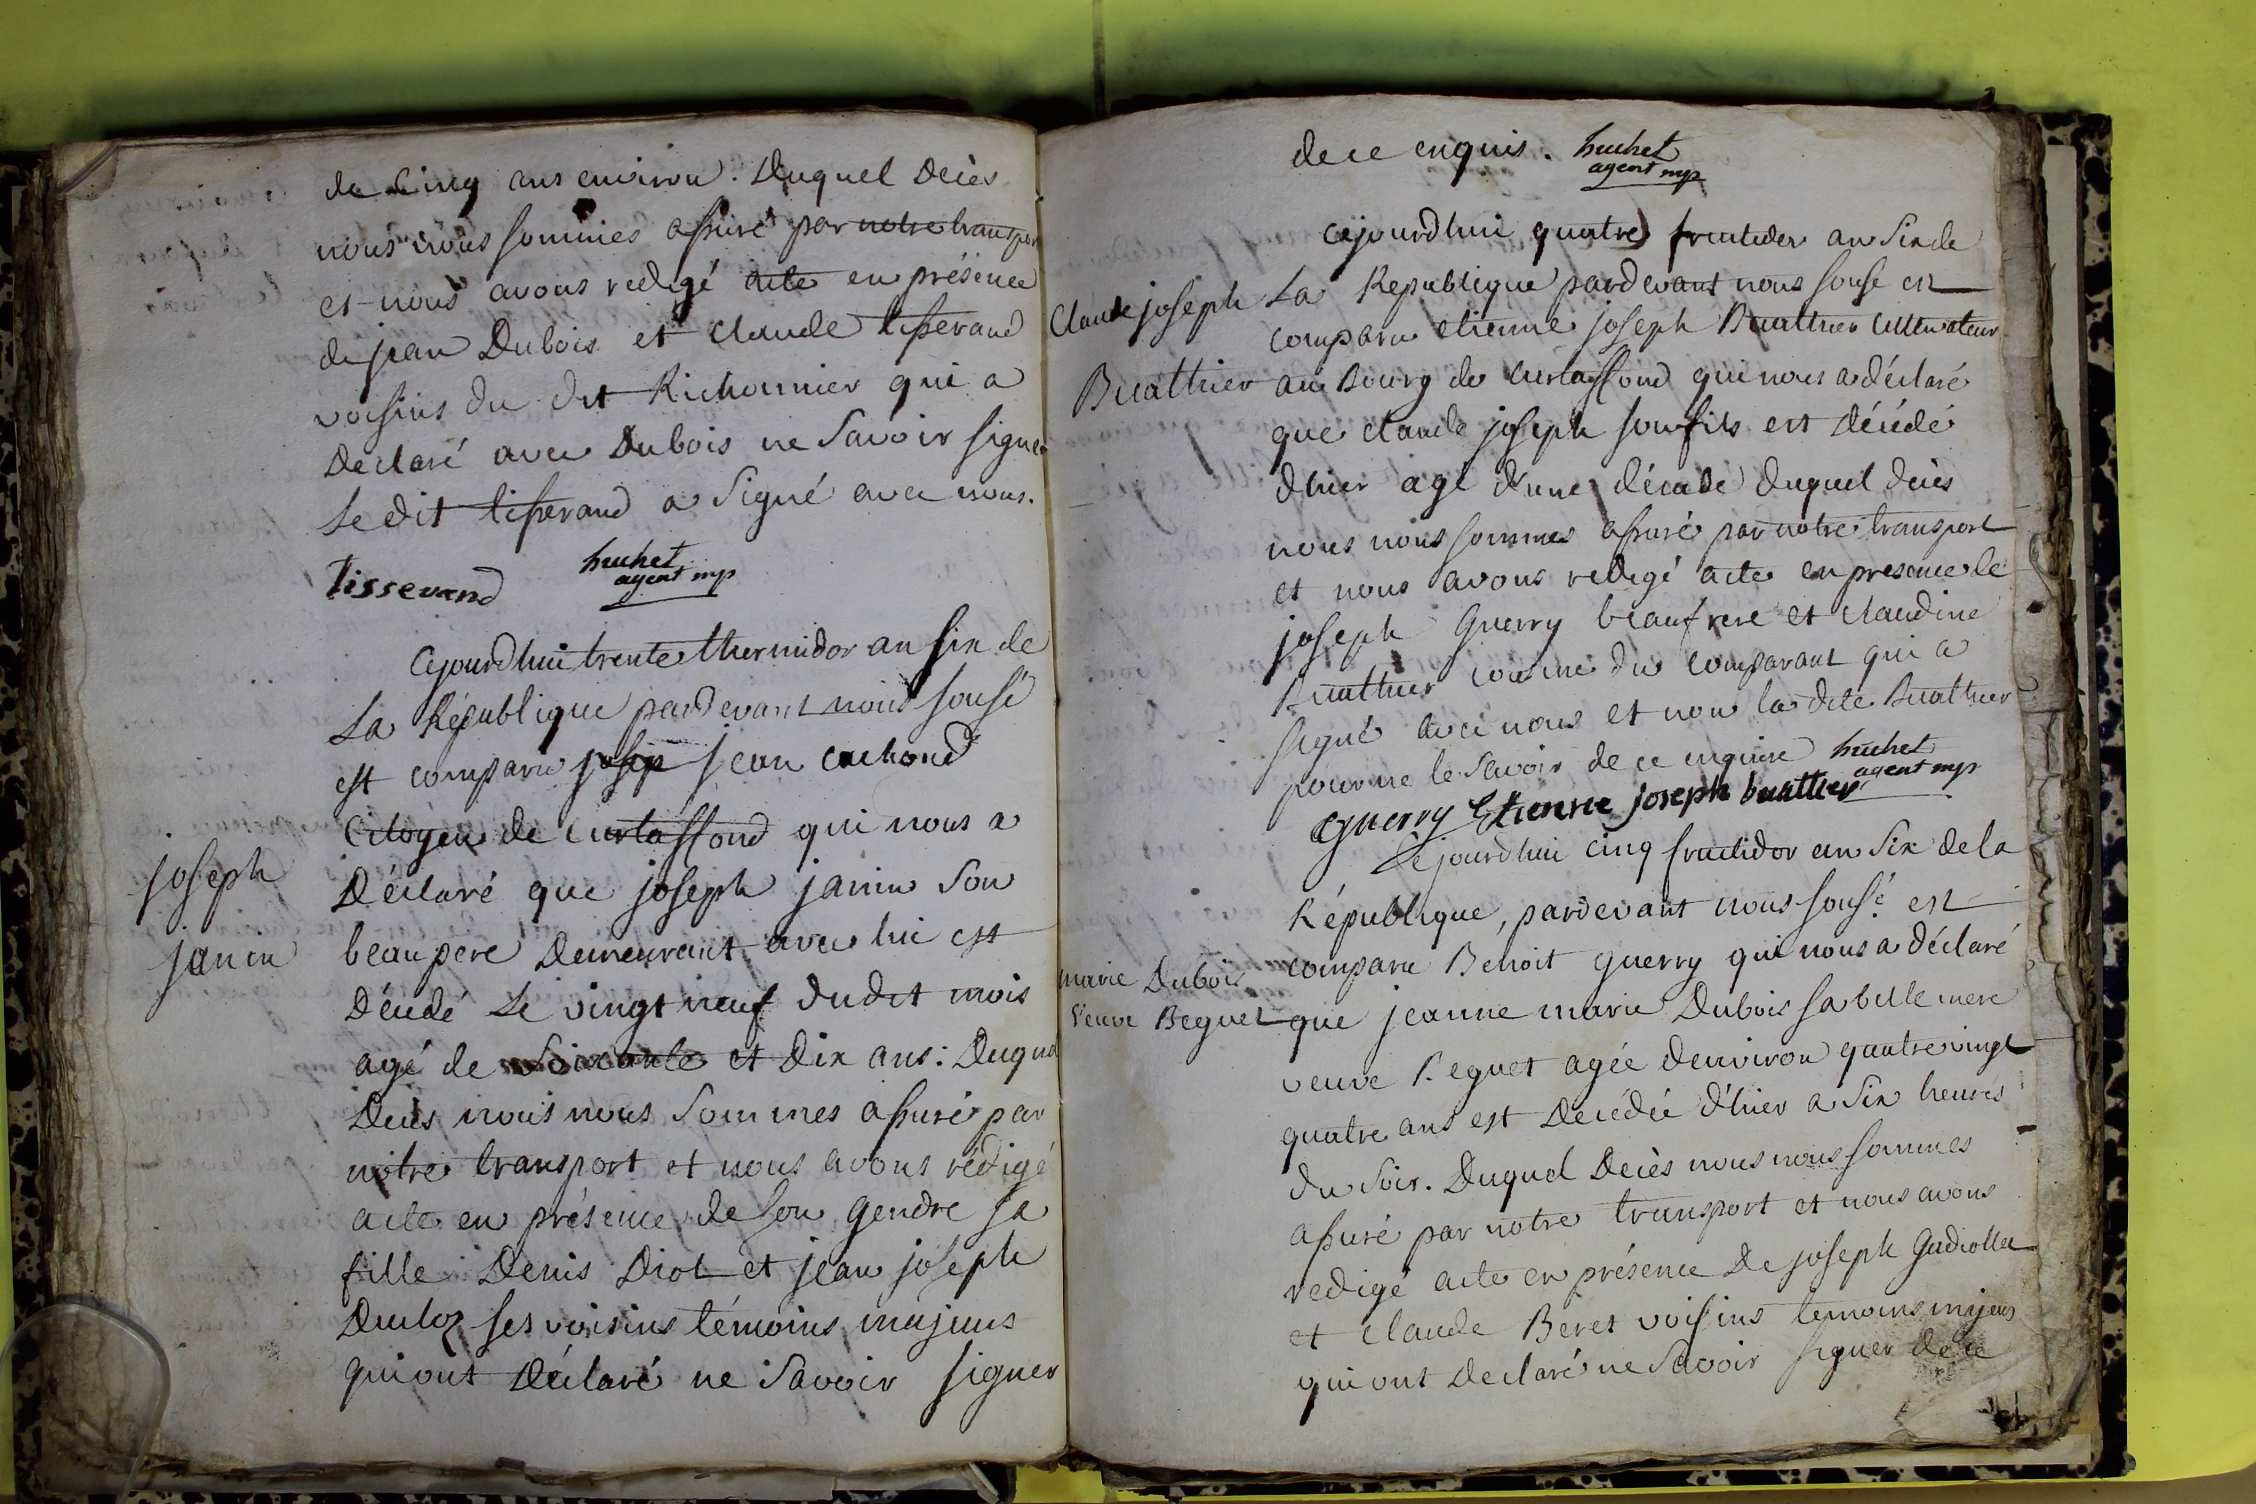 de Cinq ans environ. Duquel Décès
nous nous sommes assuré par notre transport
et nous avons redigé acte en présence
de jean Dubois et Claude tisserand
voisins du dit Richonnier qui a
Déclaré avec Dubois ne Savoir signer
Le dit tisserand a Signé avec nous.
Tisserand
huchet
agent mpr
Cejourdhui trente thermidor an Six de
La République pardevant nous sousé
est comparu josep jean cachond
Citoyen de Curtaffond qui nous a
joseph
janin
Déclaré que joseph janin Son
beaupere Demeurant avec lui est
Décédé Le vingt neuf dudit mois
agé de Soixante et Dix ans: Duquel
Décès nous nous Sommes assuré par
notre transport et nous avons rédigé
acte en présence de Son gendre sa
fille Denis Diot et jean joseph
ses voisins témoins majeurs
qui ont Déclaré ne Savoir signer
de ce enquis. huchet
agent mpr
Cejourdhui quatre fructidor an Six de
Claude joseph
Buathier
La Republique pardevant nous souse est
comparu etienne joseph Buathier Cultivateur
au Bourg de Curtaffond qui nous a déclaré
que claude joseph son fils est Décédé
dhier agé d'une décade duquel décès
nous nous sommes assuré par notre transport
et nous avons redigé acte en presence de
joseph Guerry beaufrere et claudine
Buathier cousine du comparant qui a
signé avec nous et non la dite Buathier
pour ne le Savoir de ce enquise huchet
agent mpr
Guerry Etienne joseph buathier
Cejourdhui cinq fructidor an Six de la
République, pardevant nous sousé est
marie Dubois
Veuve Beguet
comparu Benoit guerry qui nous a déclaré
que jeanne marie Dubois sa belle mere
veuve Beguet agée denviron quatre vingt
quatre ans est Décédée d'hier a Six heures
du Soir. Duquel Décès nous nous sommes
assuré par notre transport et nous avons
redigé acte en présence De joseph Gudiollet
et claude Beret voisins temoins majeurs
qui ont Declaré ne Savoir signer de ce